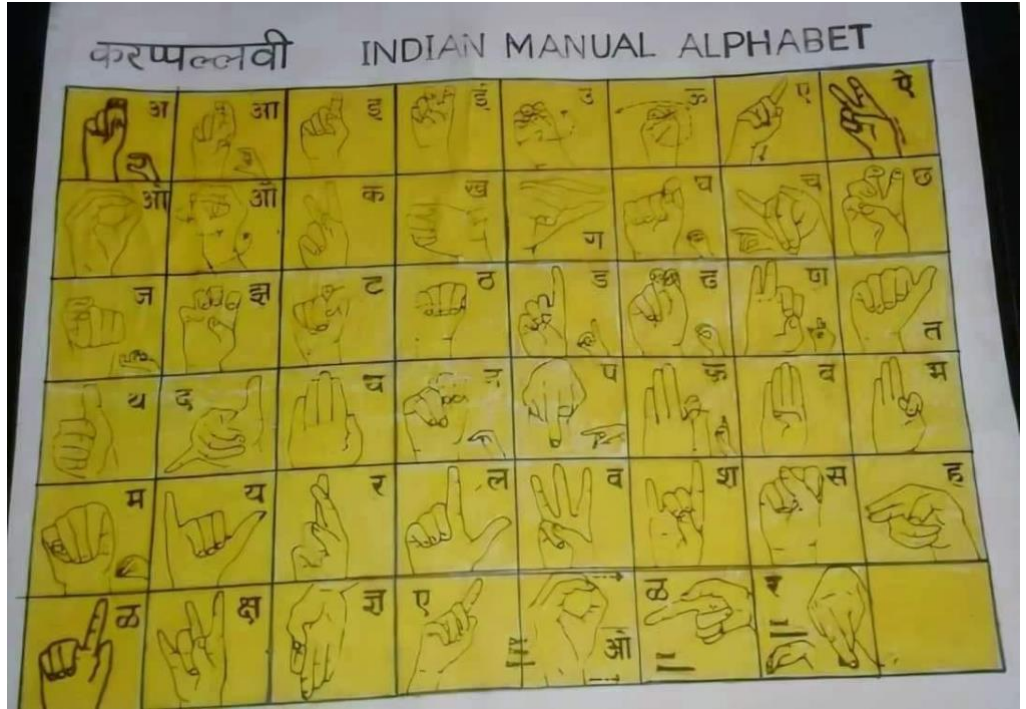 करप्पल्लवी INDIAN MANUAL ALPHABET
अ आ इ ई उ ऊ ए ऐ
ओ औ क ख ग घ च छ
ज झ ट ठ ड ढ ण त
थ द ध प फ ब भ
म य र ल व श स ह
ळ क्ष ज्ञ ए ओ ळ र